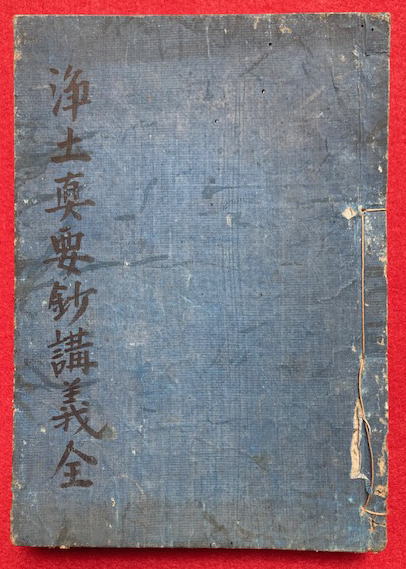 浄土真要鈔講義全